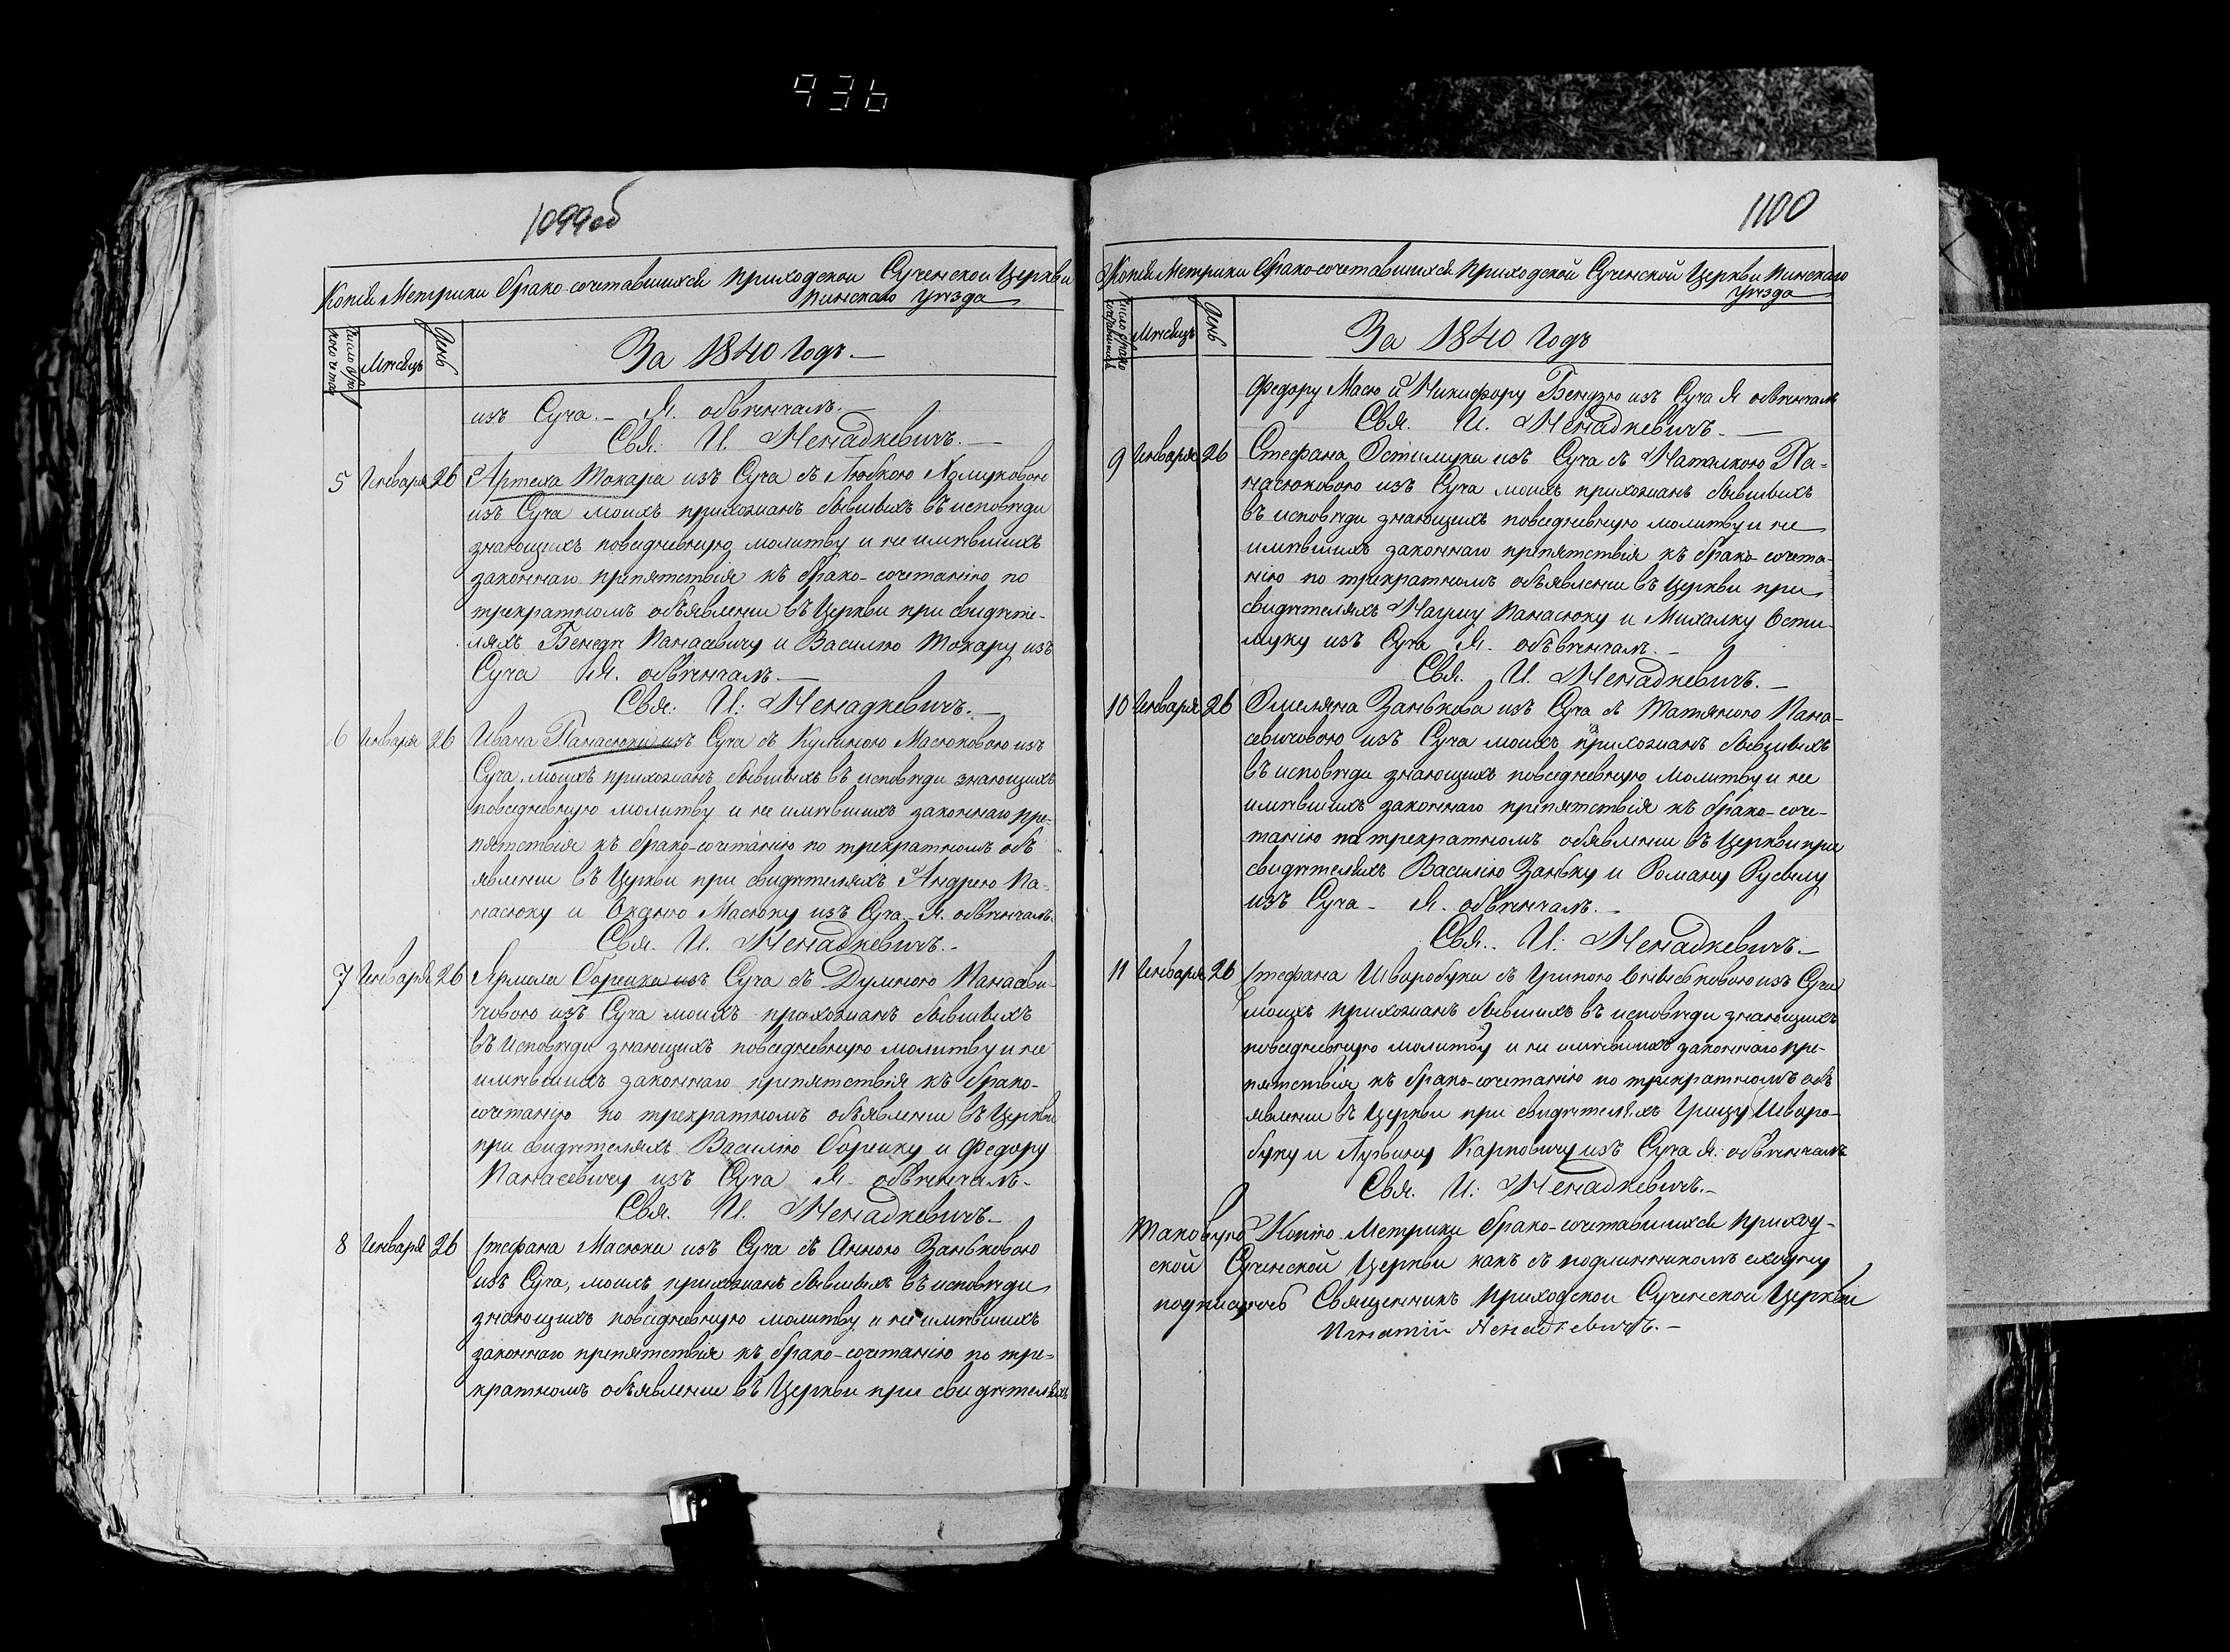 936
1099об
Копія Метрики брако-сочетавшихся приходской Сученской Церкви
Пинскаго уѣзда
Мѣсяцъ
День
За 1840 Годъ.—
изъ Суча.— Я. обвѣнчалъ.—
Свя. И. Ненадкевичъ.—
5 Января 26 Артема Токара изъ Суча съ Любкою
изъ Суча моихъ прихожанъ бывшихъ въ исповѣди
знающихъ повседневную молитву и не имѣвшихъ
законнаго препятствія къ брако-сочетанію по
трекратномъ объявленіи въ Церкви при свидѣте-
ляхъ Бенедѣ Панасевичу и Василію Токару изъ
Суча Я. обвѣнчалъ.—
Свя. И. Ненадкевичъ.—
6 Января 26 Ивана Панасюка изъ Суча съ Кулиною Масюковою изъ
Суча, моихъ прихожанъ бывшихъ въ исповѣди знающихъ
повседневную молитву и не имѣвшихъ законнаго пре-
пятствія къ брако-сочетанію по трекратномъ объ
явленіи въ Церкви при свидѣтеляхъ Андрею Па-
насюку и Масюку изъ Суча Я. обвѣнчалъ.
Свя. И. Ненадкевичъ.-
7 Января 26 Ярмола Борейка изъ Суча съ Думною Панасеви-
човою изъ Суча моихъ прихожанъ бывшихъ
въ исповѣди знающихъ повседневную молитву и не
имѣвшихъ законнаго препятствія къ брако-
сочетанію по трекратномъ объявленіи въ Церкви
при свидѣтеляхъ Василію Борейку и Федору
Панасевичу изъ Суча Я. обвѣнчалъ-
Свя. И. Ненадкевичъ-
8 Января 26 Стефана Масюка изъ Суча съ Анною Занковою
изъ Суча, моихъ прихожанъ бывшихъ въ исповѣди
знающихъ повседневную молитву и не имѣвшихъ
законнаго препятствія къ брако-сочетанію по тре-
кратномъ объявленіи въ Церкви при свидѣтеляхъ
1100
Копія Метрики брако-сочетавшихся Приходской Сученской Церкви Пинскаго
уѣзда
Мѣсяцъ
День
За 1840 Годъ
Федору Масю и Никифору Бендзю изъ Суча Я обвѣнчалъ
Свя. И. Ненадкевичъ.—
9 Января 26 Стефана Остимука изъ Суча съ Наталкою Па-
насюковою изъ Суча моихъ прихожанъ бывшихъ
въ исповѣди знающихъ повседневную молитву и не
имѣвшихъ законнаго препятствія къ брако-сочета-
нію по трекратномъ объявленіи въ Церкви при
свидѣтеляхъ Панасюку и Михалку Ости-
муку изъ Суча Я. объвѣнчалъ.-
Свя. И. Ненадкевичъ.—
10 Января 26 Омеляна Занькова изъ Суча съ Татяною Пана-
севичовою изъ Суча моихъ прихожанъ бывшихъ
въ исповѣди знающихъ повседневную молитву и не
имѣвшихъ законнаго препятствія къ брако-соче-
танію по трекратномъ обявленіи въ Церкви при
свидѣтеляхъ Василію Заньку и Роману
изъ Суча - Я. обвѣнчалъ.-
Свя. И. Ненадкевичъ-
11 Января 26 Стефана Шворобука съ изъ Суча
моихъ прихожанъ бывшихъ въ исповѣди знающихъ
повседневную молитву и не имѣвшихъ законнаго пре-
пятствія къ брако-сочетанію по трекратномъ объ
явленіи въ Церкви при свидѣтеляхъ Грицу Шворо-
буку и Карповичу изъ Суча Я. обвѣнчалъ
Свя. И. Ненадкевичъ.-
Таковую Копію Метрики брако-сочетавшихся приход-
ской Сученской Церкви какъ съ подлинникомъ сходну
подписуюсь Священникъ приходской Сученской Церкви
Игнатій Ненадкевичъ.-